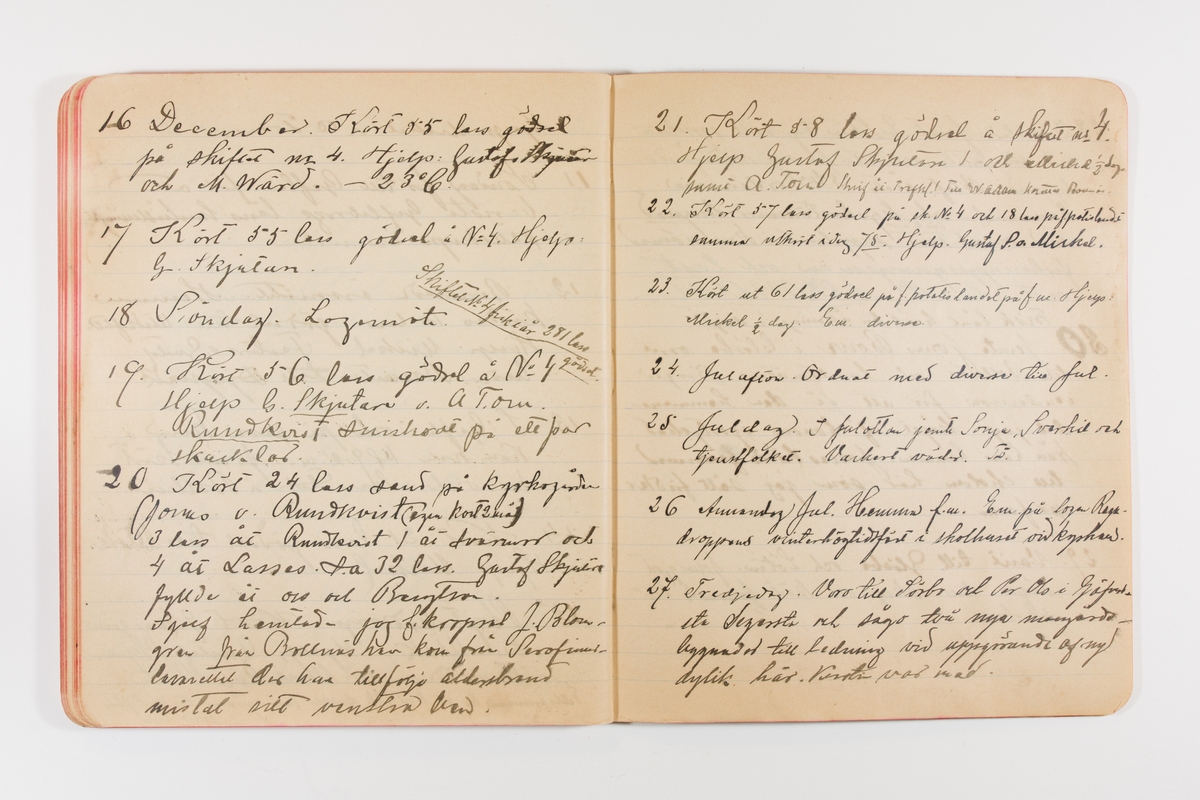 16 December. Kört 55 lass gödsel
på skiftet no 4. Hjelp: Gustaf Skjutar
och M. Wärd. - 23° C.
17 Kört 55 lass gödsel å No 4. Hjelp:
G. Skjutar.
Skiftet No 4 fick i år 281 lass
gödsel.
18 Söndag. Logemöte.
19. Kört 56 lass gödsel å No 4
Hjelp G. Skjutare o. A Torn.
Rundkvist på ett par
20 Kört 24 lass sand på kyrkogården
(Jonas o. Rundkvist
3 lass åt Rundkvist 1 åt svärmor och
4 åt Lasses. S:a 32 lass. Gustaf Skjutare
fyllde åt oss och Bengtson.
Sjelf hemtade jag f. korpral J. Blom-
gren från Bollnäs han kom från Serafimer-
lasarettet der han tillfölje åldersbrand
mistat sitt venstra ben.
21. Kört 58 lass gödsel å skiftet no 4.
Hjelp Gustaf Skjutare 1 och Mickel ½ dag
samt A. Torn
22. Kört 57 lass gödsel på sk. No 4 och 18 lass på f. potatislandet
summa utkört i dag 75. Hjelp. Gustaf S. o Mickel.
23. Kört ut 61 lass gödsel på f. potatislandet på f.m. Hjelp:
Mickel ½ dag Em. diverse
24. Julafton. Ordnat med diverse till Jul.
25 Juldag. I julottan jemte Sonja, och
tjenstfolket. Vackert väder.
26 Annandag Jul. Hemma f.m. Em. på logen Regn-
droppens vinterhögtidsfäst i skolhuset vid kyrkan.
27. Tredjedag. Voro till Sörbo och Per Ols i
sta Segersta och sågo två nya mangårds-
byggnader till ledning vid uppgörande af ny
dylik här. Kerstin var med.